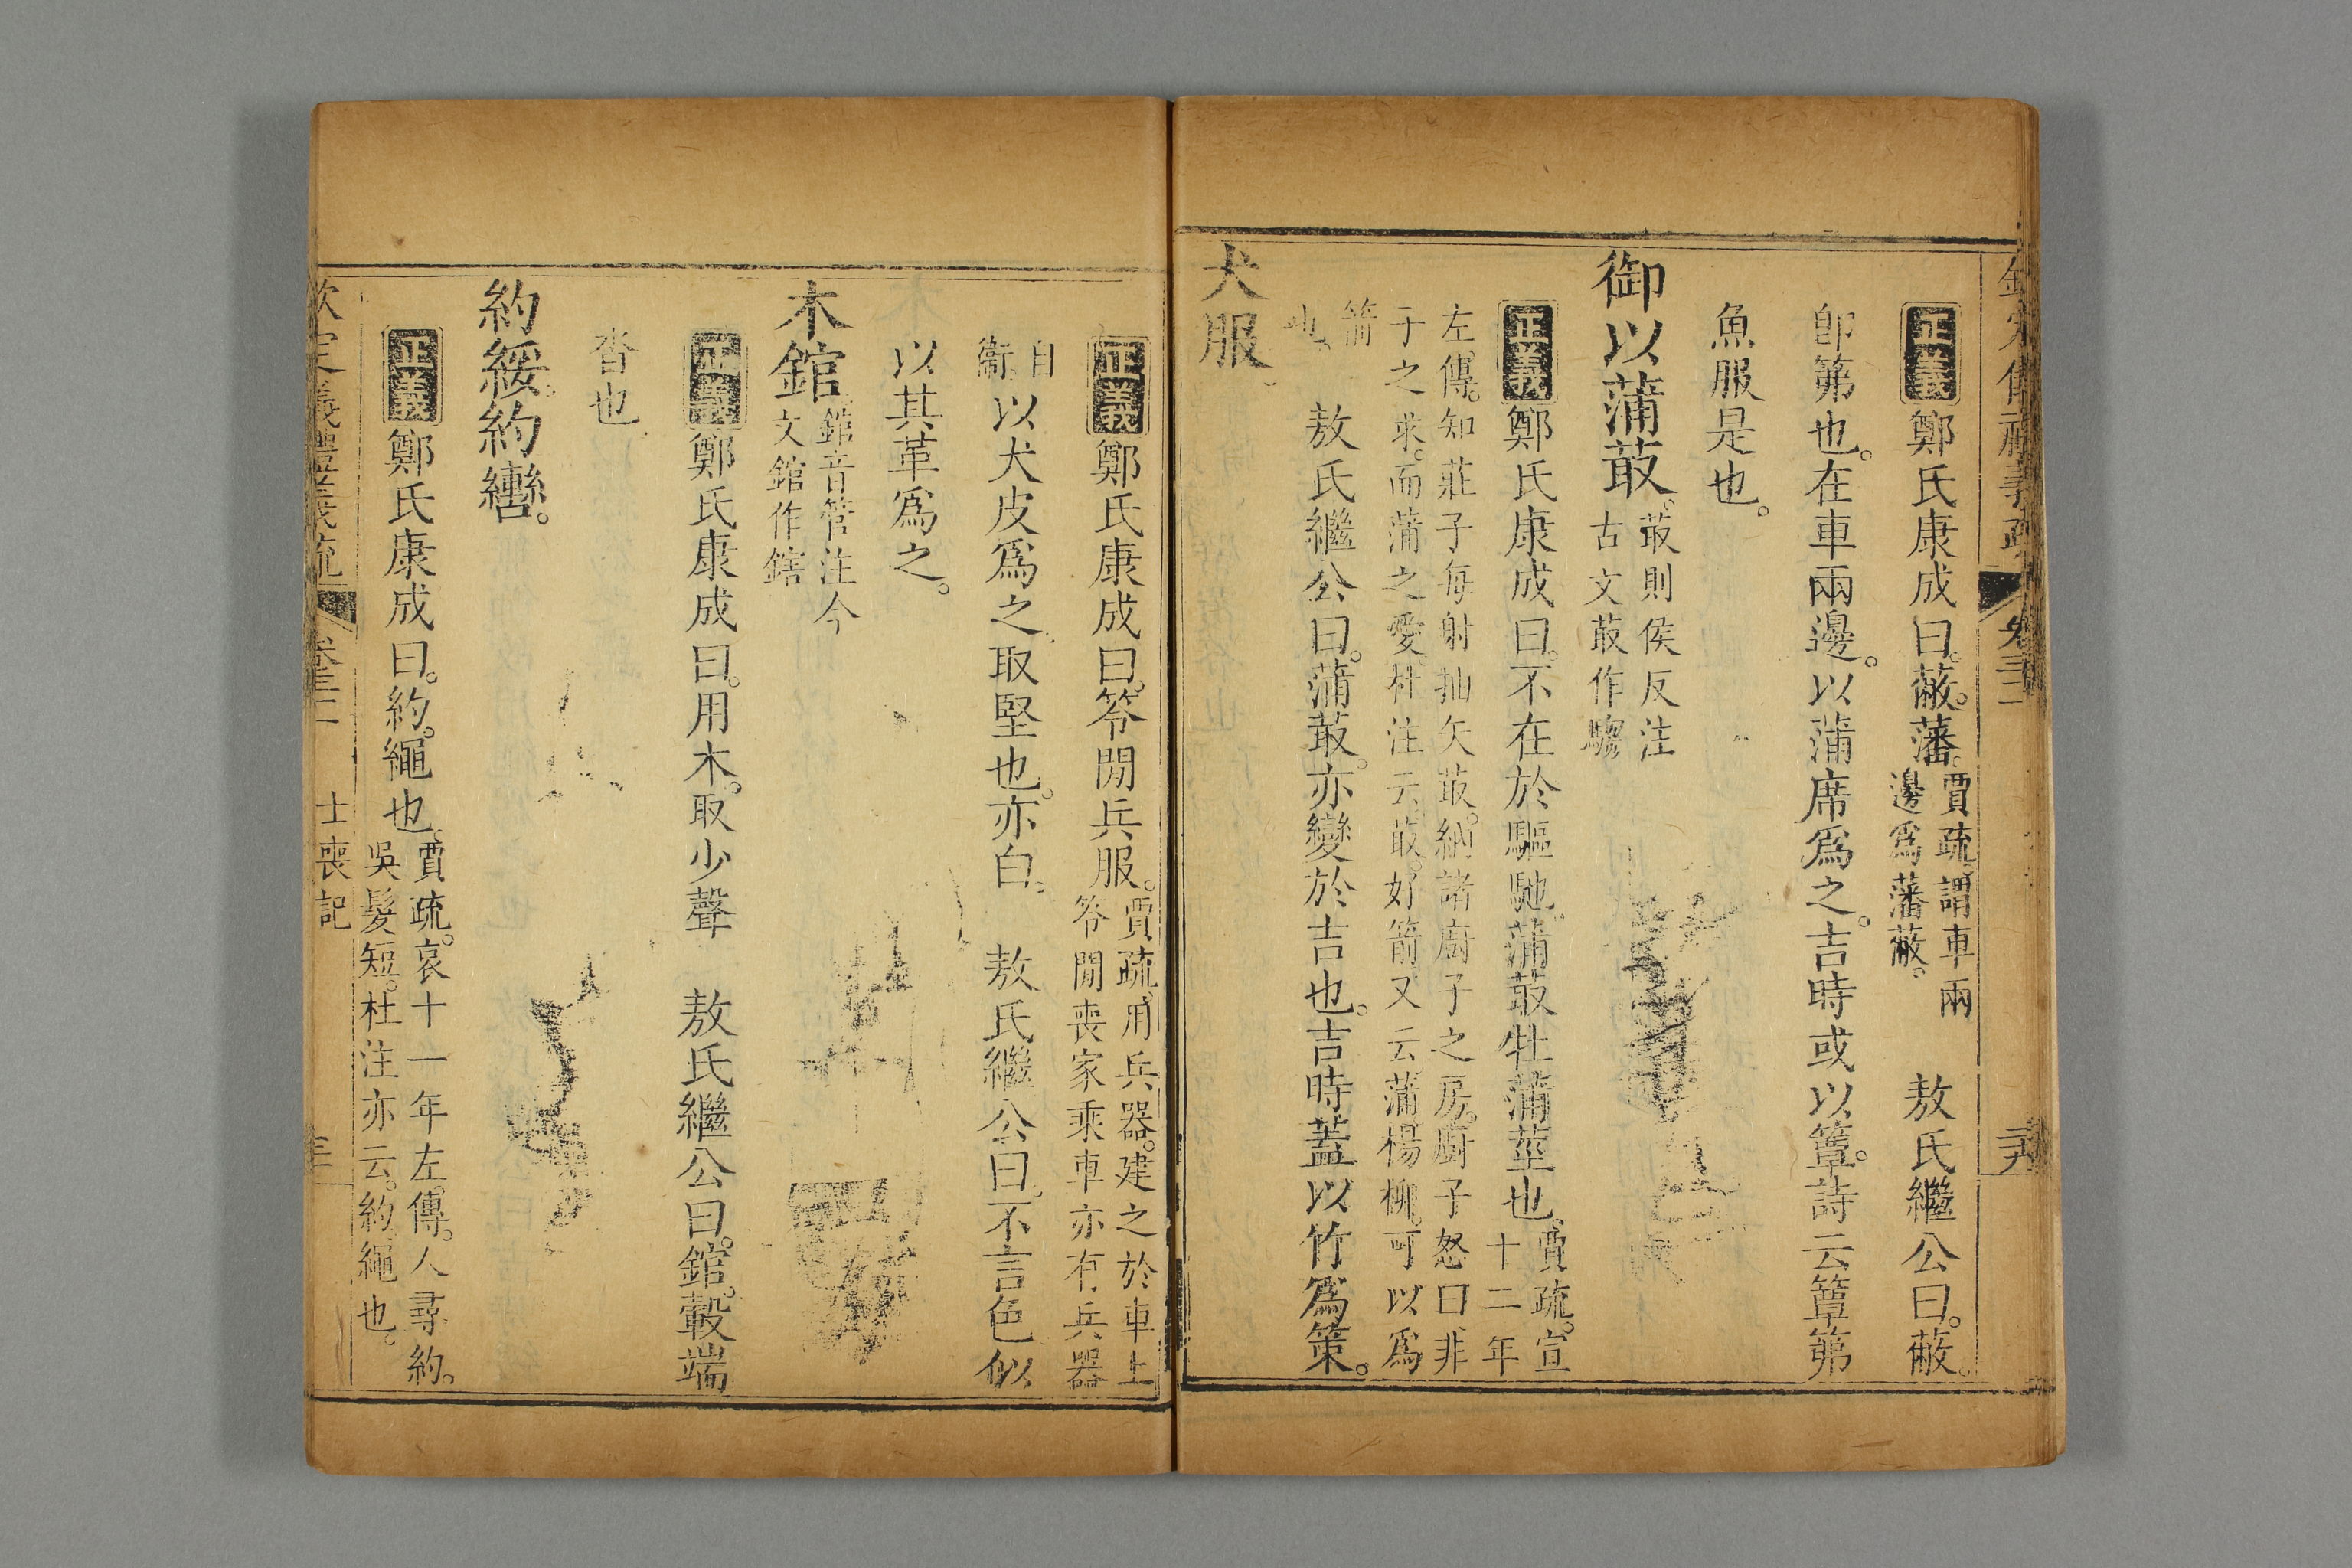 正義鄭氏康成曰。蔽。藩。賈疏。謂車兩
邊爲藩蔽。 敖氏繼公曰。蔽。
卽笰也。在車兩邊。以蒲席爲之。吉時或以簟。詩云簟笰
魚服是也。
御以蒲菆。菆則侯反注
古文菆作騶
正義鄭氏康成曰。不在於驅馳。蒲菆牡蒲莖也。賈疏。宣
十二年
左傳。知莊子每射抽矢菆。納諸廚子之房。廚子怒曰。非
子之求。而蒲之愛。杜注云。菆。好箭又云蒲楊柳。可以爲
箭
也。
敖氏繼公曰。蒲菆。亦變於吉也。吉時蓋以竹爲策。
犬服。
正義鄭氏康成曰。笭閒兵服。賈疏。用兵器。建之於車上
笭閒喪家乘車亦有兵器
自
衞。以犬皮爲之。取堅也。亦白。 敖氏繼公曰。不言色似
以其革爲之。
木錧。錧音管注今
文錧作鎋
正義鄭氏康成曰。用木。取少聲 敖氏繼公曰。錧。轂端
沓也。
約綏。約轡。
正義鄭氏康成曰。約。繩也。賈疏。哀十一年左傳。人尋約。
吳髮短。杜注亦云。約繩也。
欽定義禮義疏 卷三十二 士喪記